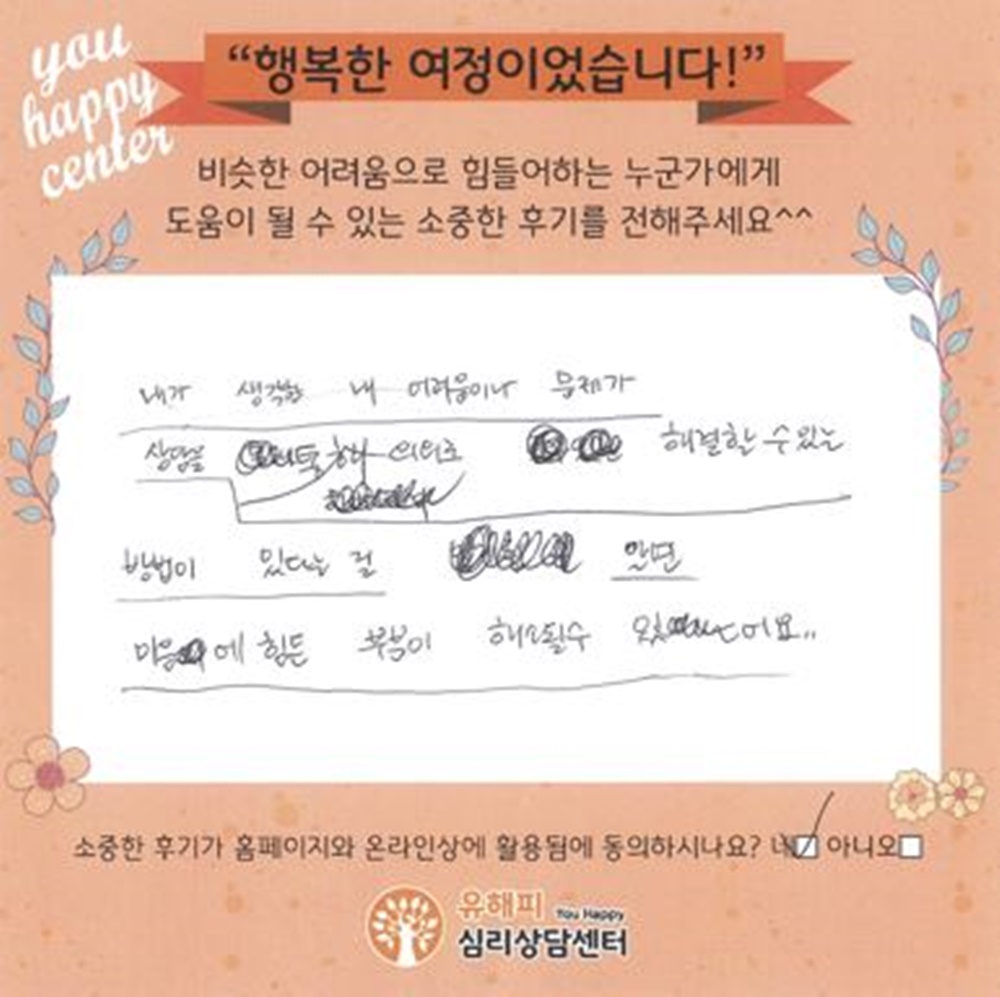 you
happy
center
“행복한 여정이었습니다!”
비슷한 어려움으로 힘들어하는 누군가에게
도움이 될 수 있는 소중한 후기를 전해주세요^^
내가 생각한 내 어려움이나 문제가
상담을 해결할 수 있는
방법이 있다는 걸 알면
마음에 힘든 부분이 해소될수 있어요..
소중한 후기가 홈페이지와 온라인상에 활용됨에 동의하시나요? 네 아니오
유해피 You Happy
심리상담센터